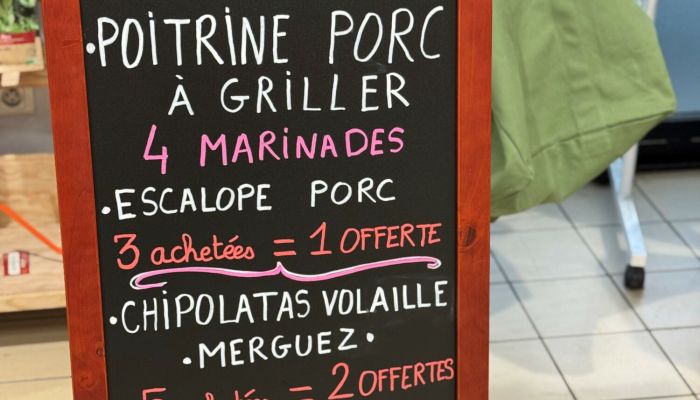 • POITRINE PORC
À GRILLER
4 MARINADES
• ESCALOPE PORC
3 achetées = 1 OFFERTE
• CHIPOLATAS VOLAILLE
• MERGUEZ •
5 achetées = 2 OFFERTES